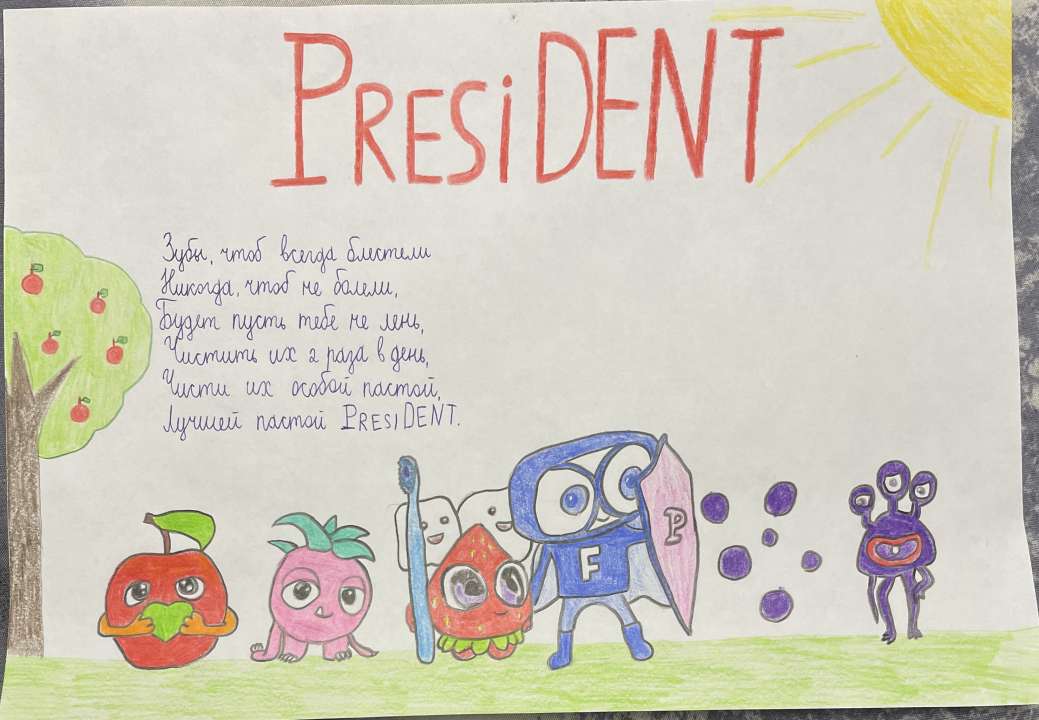 PRESiDENT
Зубы, чтоб всегда блестели
Никогда, чтоб не болели,
Будет пусть тебе не лень,
Чистить их 2 раза в день,
Чисти их особой пастой,
Лучшей пастой PRESIDENT.
F
P